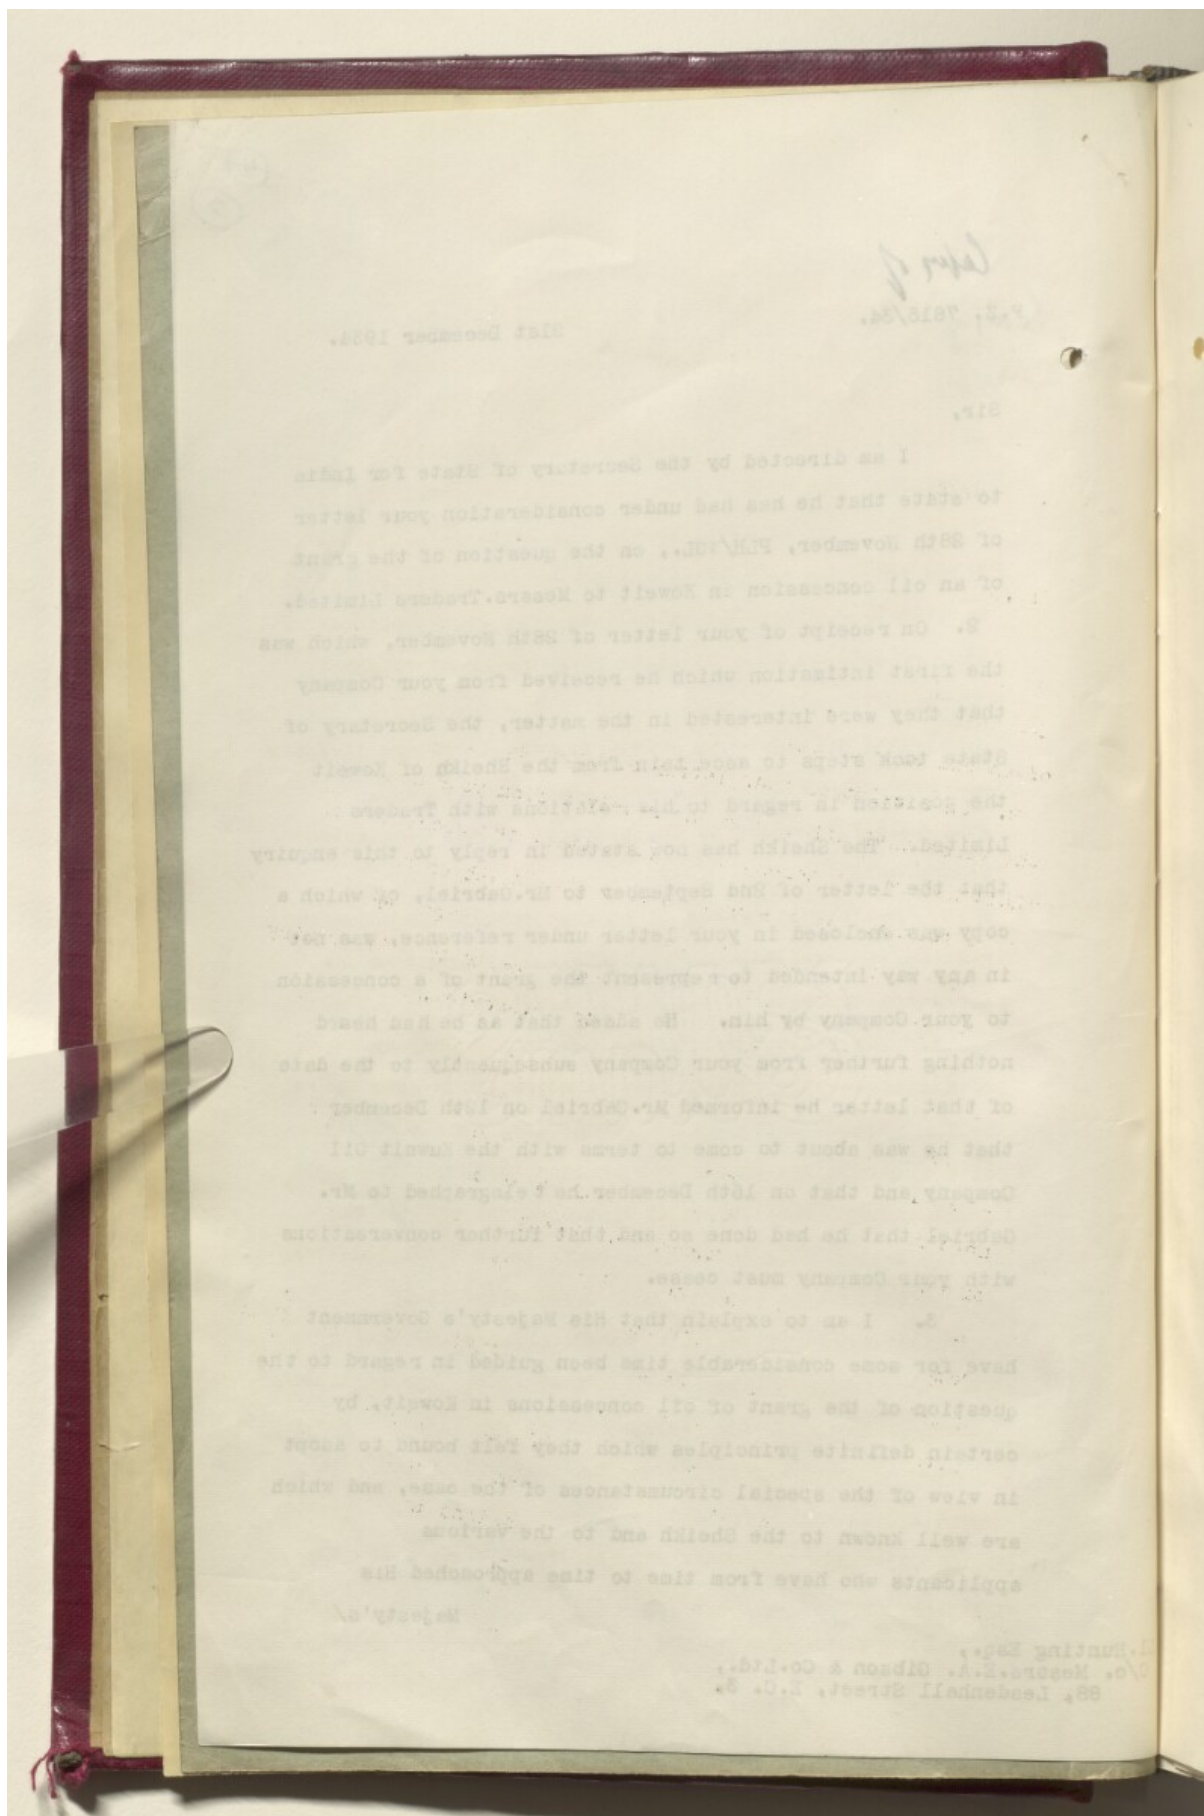 Copy of
P.Z. 7818/34.
21st December 1934.
Sir,
I am directed by the Secretary of State for India
to state that he has had under consideration your letter
of 28th November, on the question of the grant
of an oil concession in Koweit to Messrs.Traders Limited.
2. On receipt of your letter of 28th November, which was
the first intimation which he received from your Company
that they were interested in the matter, the Secretary of
State took steps to ascertain from the Sheikh of Koweit
the position in regard to his relations with Traders
Limited. The Sheikh has now stated in reply to this enquiry
that the letter of 2nd September to Mr.Gabriel, of which a
copy was enclosed in your letter under reference, was not
in any way intended to represent the grant of a concession
to your Company by him. He added that as he had heard
nothing further from your Company subsequently to the date
of that letter he informed Mr.Gabriel on December
that he was about to come to terms with the Kuwait Oil
Company and that on 16th December he telegraphed to Mr.
Gabriel that he had done so and that further conversations
with your Company must cease.
3. I am to explain that His Majesty's Government
have for some considerable time been guided in regard to the
question of the grant of oil concessions in Koweit, by
certain definite principles which they felt bound to adopt
in view of the special circumstances of the case, and which
are well known to the Sheikh and to the various
applicants who have from time to time approached His
Majesty's/
Hunting Esq.,
C/o. Messrs.E.A. Gibson & Co.Ltd.,
88, Leadenhall Street, E.C. 3.